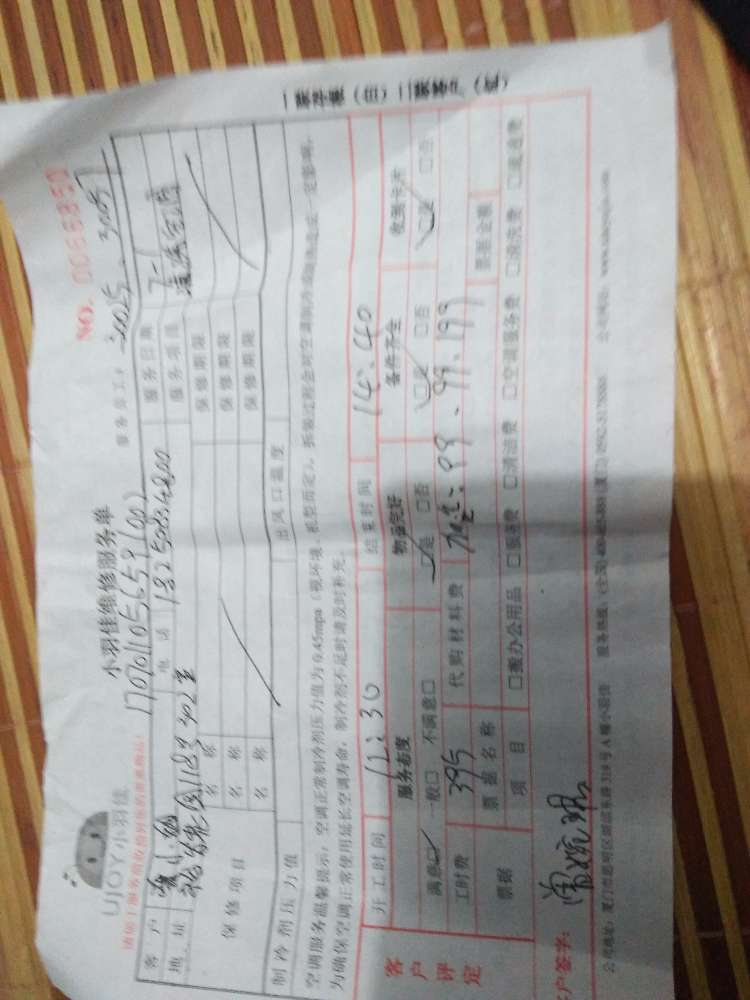 UJOY小羽佳
小羽佳维修服务单
NO. 0056850
请您于服务前收拾好您的贵重物品!
17070110565591002
服务员工: 30025、30057
客户
电话 18250834800
服务日期 7-1
地址
118号302室
服务项目 清洗空调
保修项目
名称
保修期限
名称
保修期限
名称
保修期限
制冷剂压力值
出风口温度
空调服务温馨提示:空调正常制冷剂压力值为0.45mpa(视环境、机型而定),拆装过程会对空调制冷或制热造成一定影响,
为确保空调正常使用延长空调寿命,制冷剂不足时请及时补充。
开工时间 12:30
结束时间 14:40
客户评定
服务态度
物品完好
备件齐全
收到卡片
满意☑ 一般□ 不满意□
☑是 □否
☑是 □否
☑是 □否
工时费 395
代购材料费
99.199
票据
票据名称
票据金额
项目
□搬办公用品 □服务费 □清洁费 □空调服务费 □清洗费 □疏通费
客户签字:
公司地址:厦门市思明区
号A幢小羽佳
服务热线:(全国)
(厦门)
公司网址:
一联存根(白)二联客户(红)